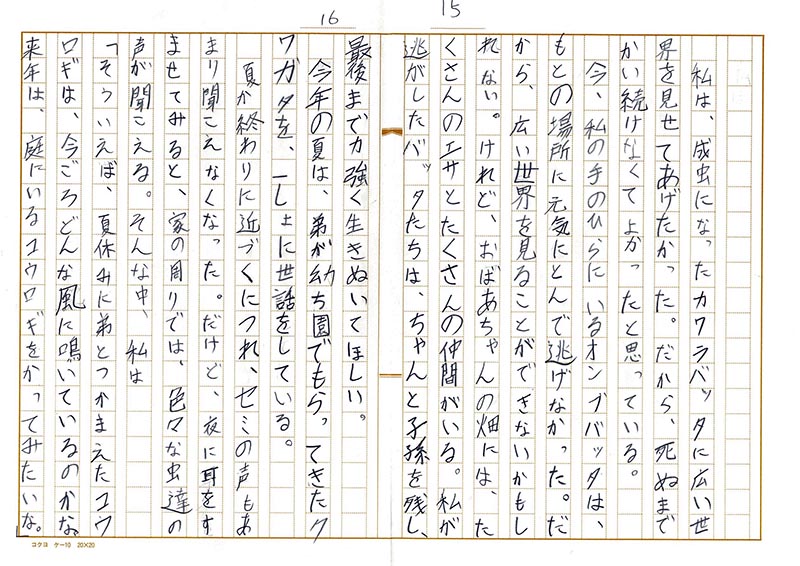 15
私は、成虫になったカワラバッタに広い世
界を見せてあげたかった。だから、死ぬまで
かい続けなくてよかったと思っている。
今、私の手のひらにいるオンブバッタは、
もとの場所に元気にとんで逃げなかった。だ
から、広い世界を見ることができないかもし
れない。けれど、おばあちゃんの畑には、た
くさんのエサとたくさんの仲間がいる。私が
逃がしたバッタたちは、ちゃんと子孫を残し、
16
最後まで力強く生きぬいてほしい。
今年の夏は、弟が幼ち園でもらってきたク
ワガタを、一しょに世話をしている。
夏が終わりに近づくにつれ、セミの声もあ
まり聞こえなくなった。だけど、夜に耳をす
ませてみると、家の周りでは、色々な虫達の
声が聞こえる。そんな中、私は
「そういえば、夏休みに弟とつかまえたコウ
ロギは、今ごろどんな風に鳴いているのかな。
来年は、庭にいるコウロギをかってみたいな。」
コクヨ ケー10 20×20